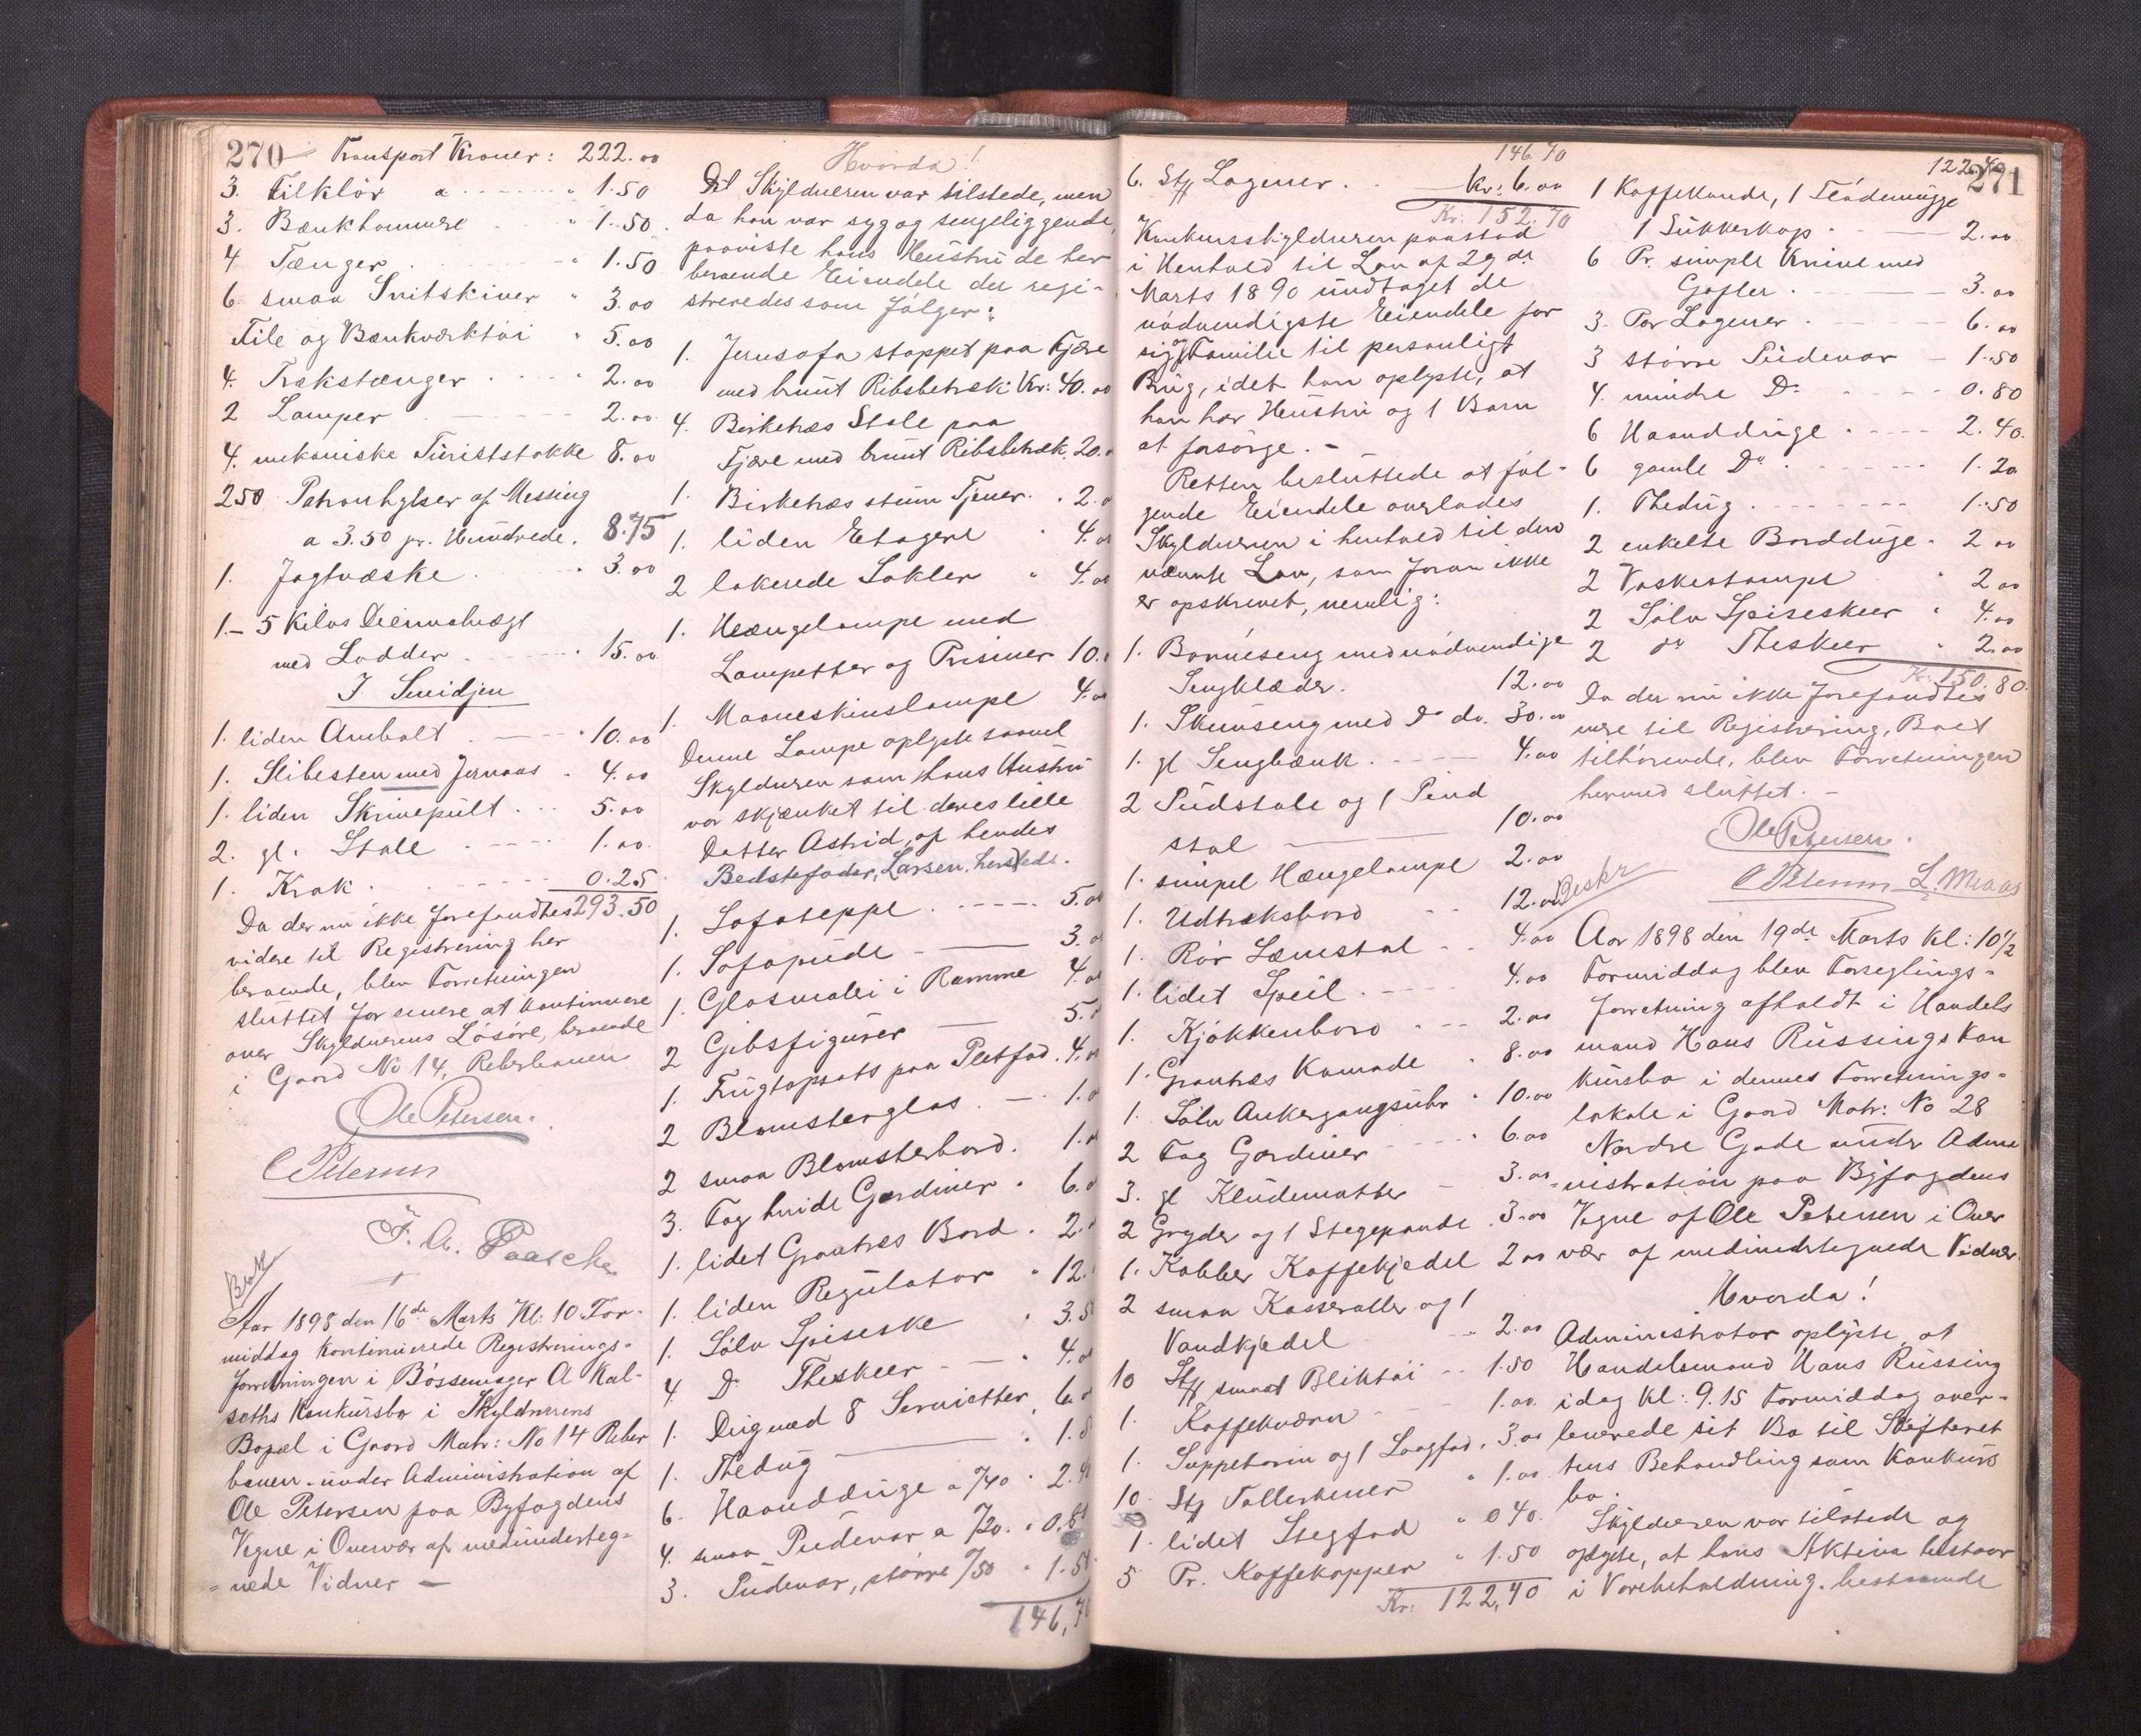 270 Transport Kroner: 222.00
3. Filklör a 1.50
3. Bænkhammere 1.50
4 Tænger 1.50
6 smaa Snitskiver 3.00
File og Bænkværktöi 5.00
4. Trækstænger 2.00
2 Lamper 2.00
4. mekaniske Türiststokke 8.00
250 Patronhylser af Messing
a 3.50 pr. Hundrede. 8.75
1. Jagtvæske 3.00
1 - 5 Kilos Decimalvægt
med Lodder 15.00
I Smidjen
1. liden Ambolt 10.00
1. Slibesten med Jernaas 4.00
1. liden Skrivepült 5.00
2. gl. Stole 1.00
1. Krak 0.25
293.50
Da der nu ikke forefandtes
videre til Registrering her
beroende, blev Forretningen
sluttet for senere at kontinuere
over Skyldnerens Lösöre, beroende
i Gaard No 14, Reberbanen
Ole Petersen.
C Petersen
F. A. Paasche
Aar 1898 den 16de Marts Kl: 10 For-
middag kontinuerede Registrerings-
forretningen i Bössemager A Kal-
seths Konkürsbo i Skyldnerens
Bopæl i Gaard Matr: No 14 Reber
banen under Administration af
Ole Petersen paa Byfogdens
Vegne i Overvær af medünderteg-
nede Vidner -
Hvorda!
Skyldneren var tilstede, men
da han var syg og sengeliggende,
paaviste hans Hüstrü de her
beroende Eiendele der regi-
streredes som fölger:
1. Jernsofa stoppet paa Fjære
med brünt Ribsbetræk Kr: 40.00
4. Birketræs Stole paa
Fjære med brünt Ribsbetræk. 20.
1. Birketræs stüm Tjener 2.
1. liden Etagere 4.
2 lakerede Sokler 4.00
1. Hængelampe med
Lampetter og Prismer 10.
1. Maaneskinslampe 4.
Denne Lampe oplyste saavel
Skyldneren som hans Hüstrü
var skjænket til deres lille
Datter Astrid, af hendes
Bedstefader, Larsen, hersteds.
1. Sofateppe 5.
1. Sofapude 3.
1. Glasmaleri i Ramme 4.
2 Gibsfigürer 5.
1. Frügtopsats paa Pletfod. 4.
2 Blomsterglas 1.
2 smaa Blomsterbord. 1.
3. Fag hvide Gardiner 6.
1. lidet Grantræs Bord. 2.
1. liden Regülator 12.
1. Sölv Spiseske 3.5
4 Do Theskeer 4.
1. Dug med 8 Servietter 6.
1. Thedüg 1.5
6. Haanddüge a /40 2.4
4. smaa Püdevar a /20. 0.8
3. Püdevar, större /50 1.5
146,7
146.70
6. Stk Lagener. Kr: 6.00
Kr: 152.70
Konkursskyldneren paastod
i Henhold til Lov af 29de
Marts 1890 ündtaget de
nödvendigste Eiendele for
sig og Familie til personligt
Brüg, idet han oplyste, at
han har Hüstrü og 1 Barn
at forsörge. -
Retten beslüttede at föl-
gende Eiendele overlades
Skyldneren i henhold til den
nævnte Lov, som foran ikke
er opskrevet, nemlig:
1. Barneseng med nödvendige
Sengklæder. 12.00
1. Skuvseng med Do do. 30.00
1. gl Sengbænk 4.00
2 Püdstole og 1 Pind
stol 10.00
1. simpel Hængelampe 2.00
1. Udtræksbord 12.00
1. Rör Lænestol 4.00
1. lidet Speil 4.00
1. Kjökkenbord 2.00
1. Grantræs Komode 8.00
1. Sölv Ankergangsühr 10.00
2 Fag Gardiner 6.00
3. gl Klüdematter 3.00
2 Gryder og 1 Stegepande 3.00
1. Kobber Kaffekjedel 2.00
2 smaa Kasseroller og 1
Vandkjedel 2.00
10 Stk smaat Bliktöi 1.50
1. Kaffekværn 1.00
1. Suppeterin og 1 Laagfad. 3.00
10 Stk Tallerkener 1.00
1. lidet Stegfad 0.40.
5 Pr. Kaffekopper 1.50
Kr: 122,40
122.40 271
1 Kaffekande, 1 Flödemügge
1 Sükkerkop 2.00
6 Pr. simple Knive med
Gafler 3.00
3. Par Lagener 6.00
3 större Püdevar 1.50
4. mindre Do 0.80
6 Haanddüge 2.40.
6 gamle Do 1.20
1. Thedüg 1.50
2 enkelte Bordduge 2.00
2 Vaskestampe 2.00
2 Sölv Spiseskeer 4.00
2 do Theskeer 2.00
Kr. 150.80.
Da der nü ikke forefandtes
mere til Registrering, Boet
tilhörende, blev Forretningen
hermed slüttet. -
Ole Petersen.
C Petersen L. Maas
Aar 1898 den 19de Marts Kl: 10½
Formiddag blev Forseglings-
forretning afholdt i Handels
mand Hans Rüssings Kon
kürsbo i dennes Forretnings-
lokale i Gaard Matr: No 28
Nordre Gade ünder Admi
nistration paa Byfogdens
Vegne af Ole Petersen i Over
vær af medündertegnede Vidner.
Hvorda!
Administrator oplyste, at
Handelsmand Hans Rüssing
idag Kl: 9.15 Formiddag over-
leverede sit Bo til Skifteret
tens Behandling som Konkürs
bo.
Skyldneren var tilstede og
oplyste, at hans Aktiva bestaar
i Varebeholdning, bestaaende